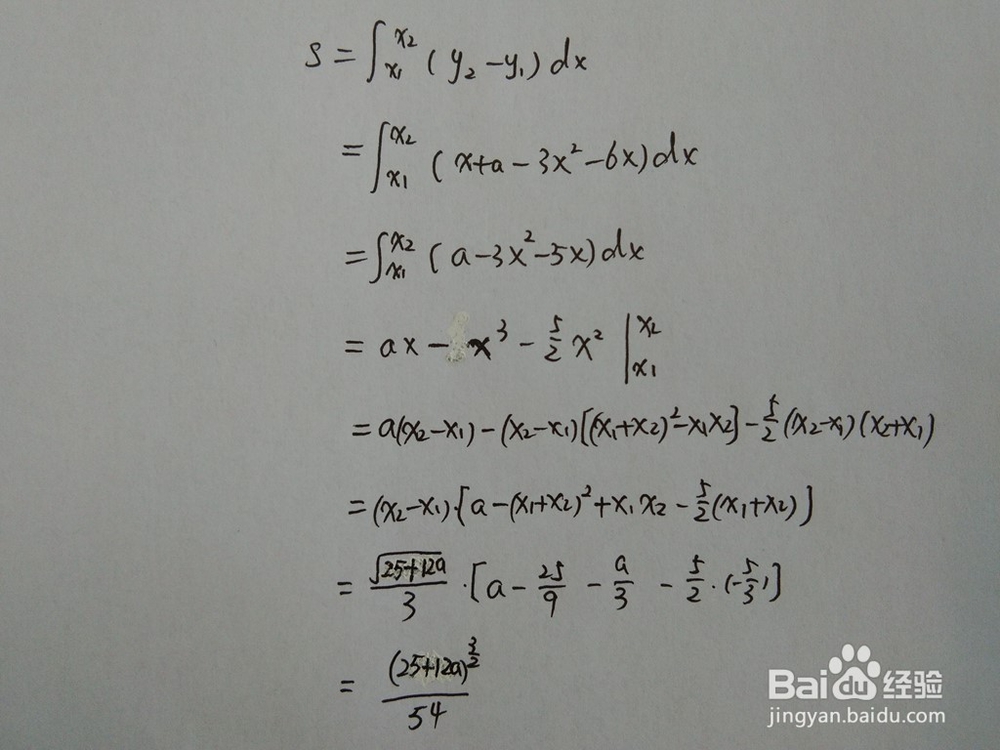 S = ∫_{x₁}^{x₂} (y₂ - y₁) dx
= ∫_{x₁}^{x₂} (x+a - 3x² - 6x) dx
= ∫_{x₁}^{x₂} (a - 3x² - 5x) dx
= ax - x³ - 5/2 x² |_{x₁}^{x₂}
= a(x₂-x₁) - (x₂-x₁)[(x₁+x₂)² - x₁x₂] - 5/2 (x₂-x₁)(x₂+x₁)
= (x₂-x₁)·[a - (x₁+x₂)² + x₁x₂ - 5/2 (x₁+x₂)]
= √(25+12a)/3 · [a - 25/9 - a/3 - 5/2 · (-5/3)]
= (25+12a)^(3/2)/54
Baidu 经验
jingyan.baidu.com